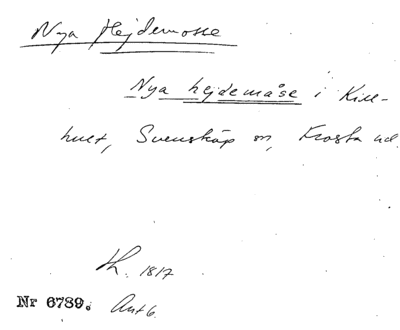 Nya Hejdemosse
Nya hejdemåse i Kill-
hult, Svensköp sn, Frosta hd.
Th. 1817
Nr 6789. Ant 6.